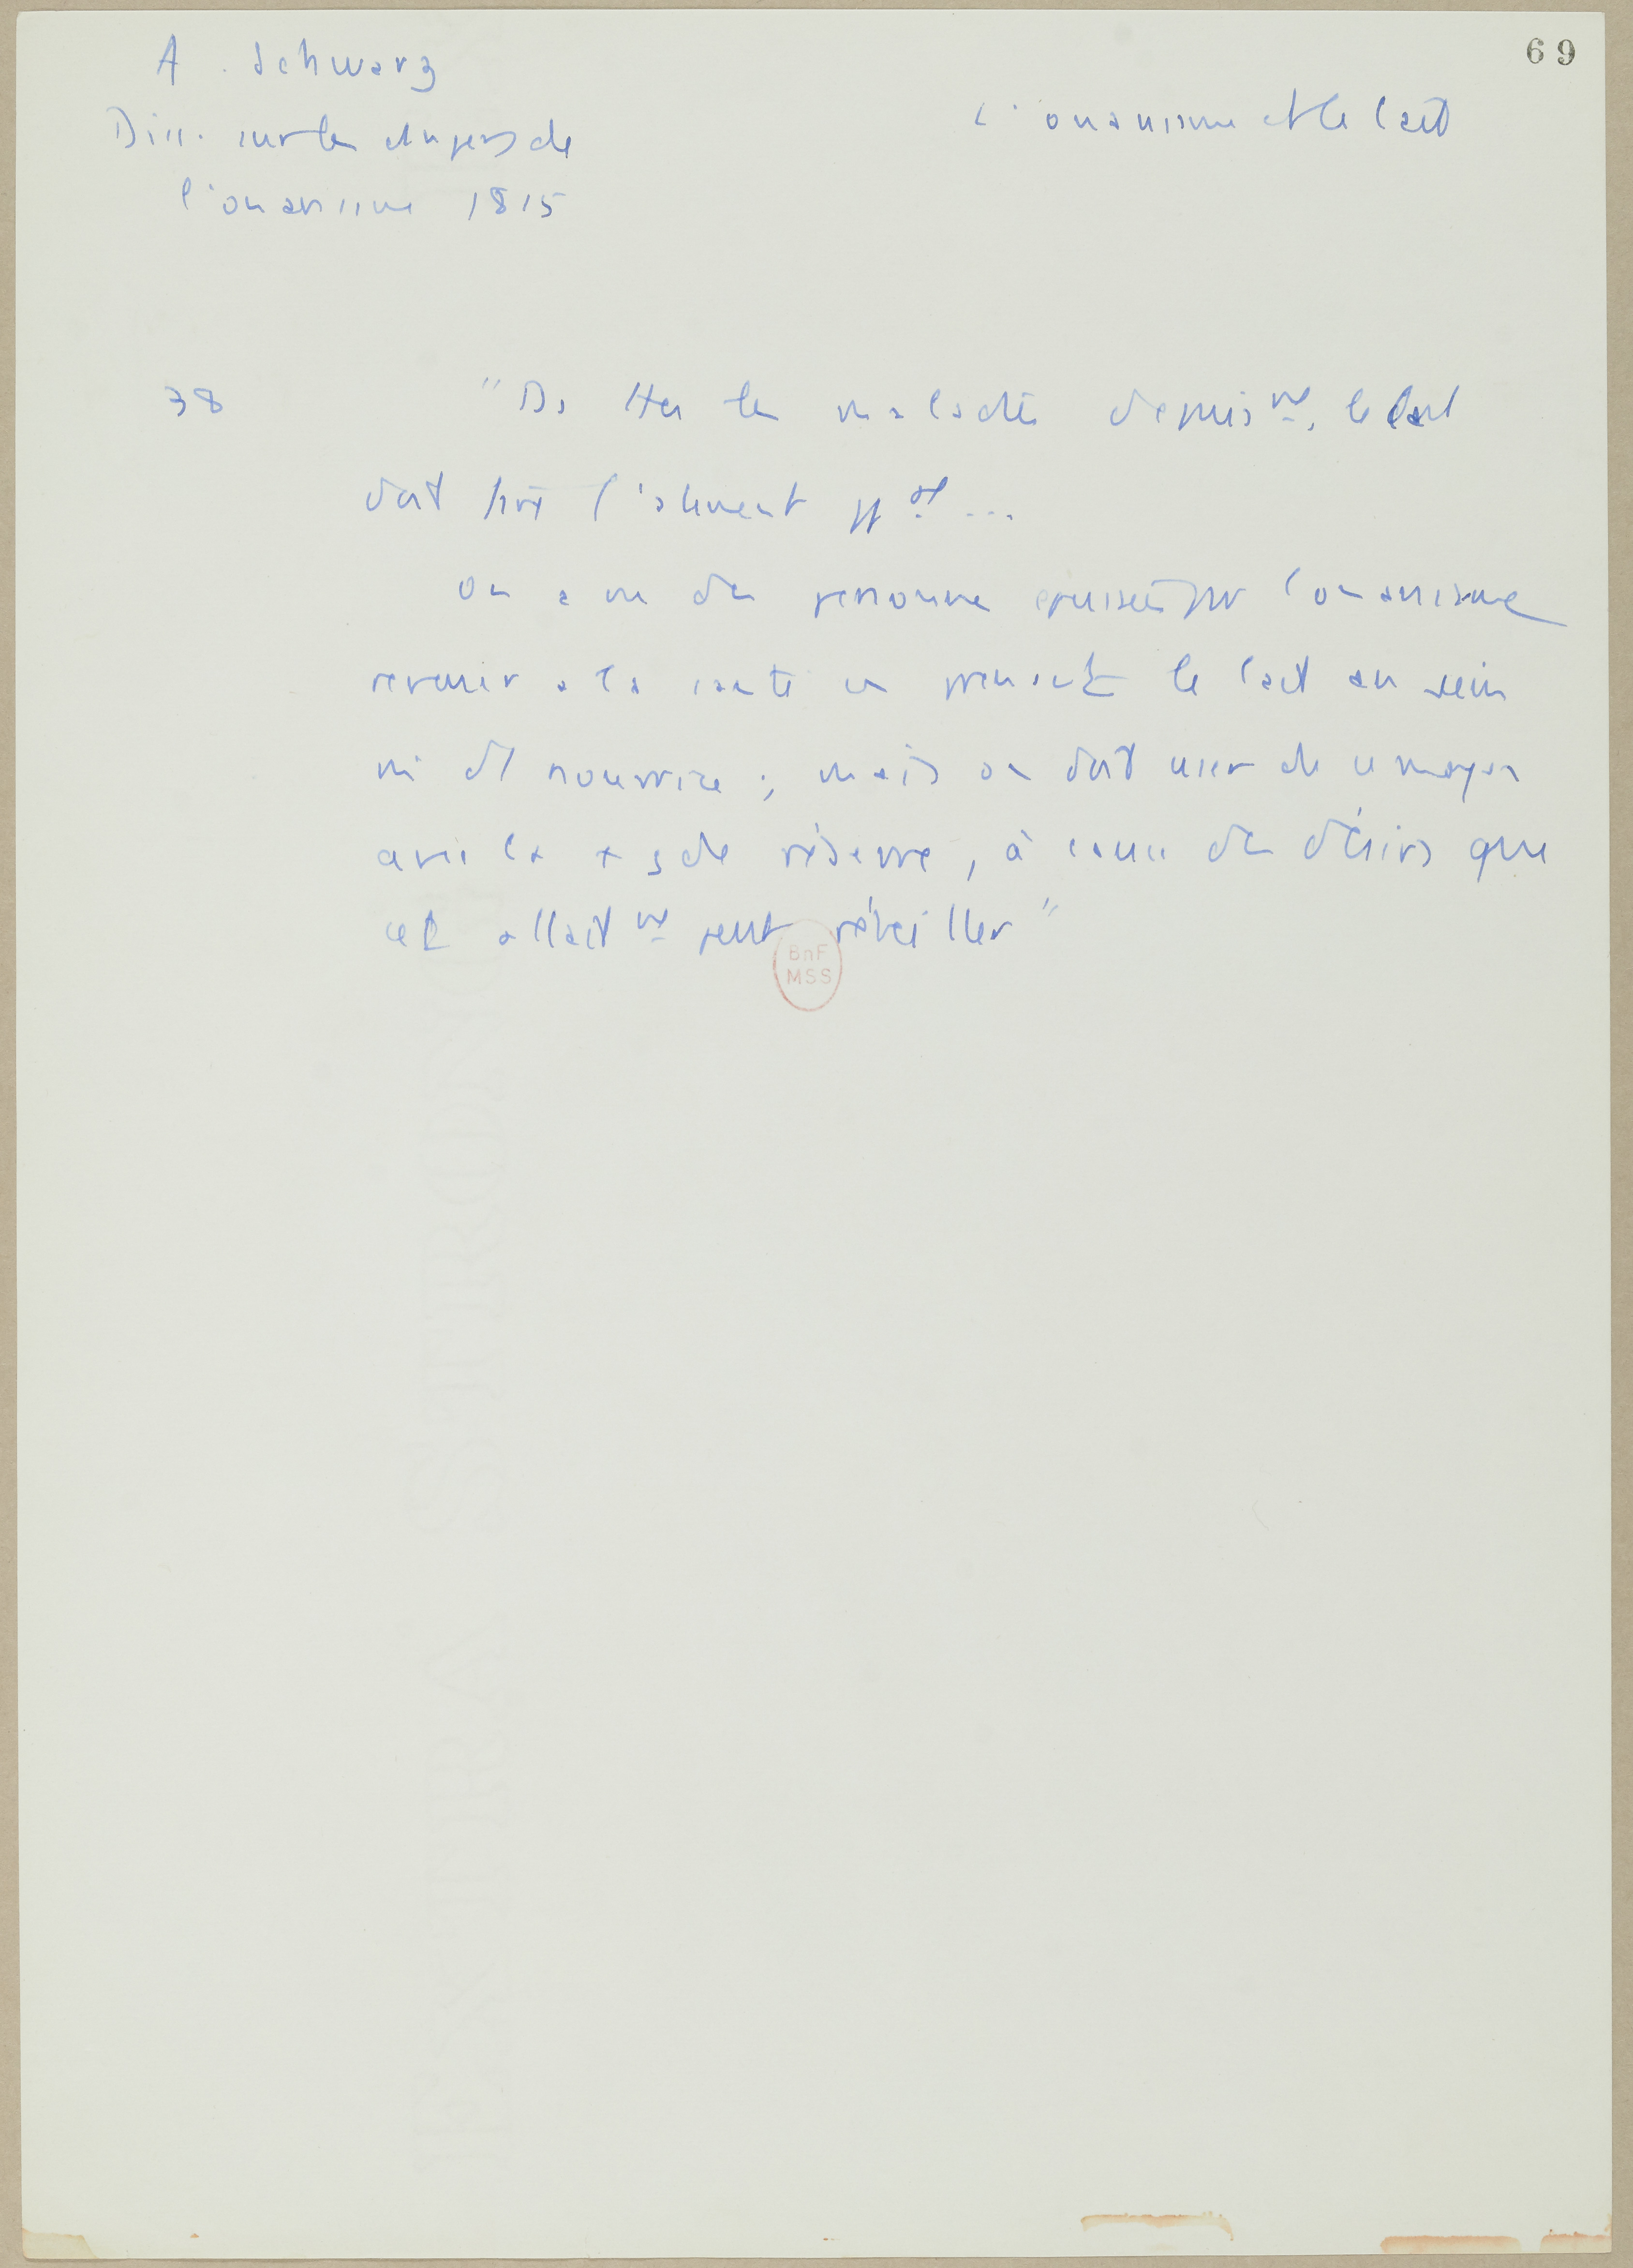 69
A. Schwarz
L'onanisme et le lait
Diss. sur les dangers de
l'onanisme 1815
38
"Ds ttes les maladies d'épuisᵗ, le lait
doit être l'aliment ppal...
On a vu des personnes épuisées par l'onanisme
revenir a la santé en prenant le lait au sein
m d'1 nourrice ; mais on doit user de ce moyen
avec la + gde réserve, à cause des désirs que
cet allaitᵗ peut réveiller"
BnF
MSS